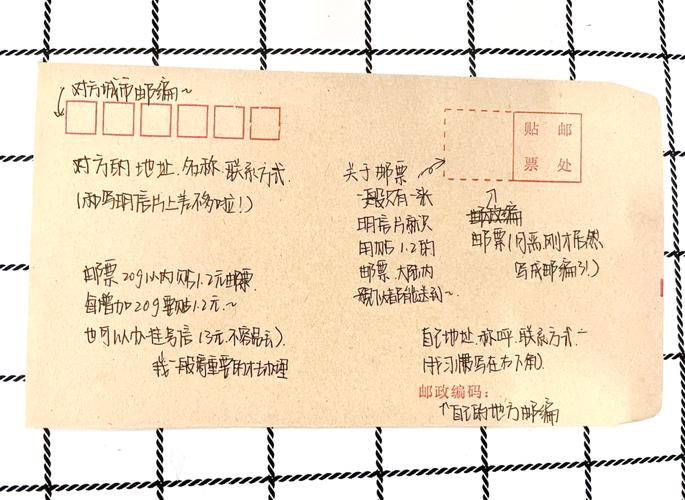 对方城市邮编～
贴 邮
票 处
对方的地址、名称、联系方式.
(和写明信片上差不多啦！)
关于邮票
一般只有一张
明信片就只
用贴1.2的
邮票，大陆内
都能送到～
邮票(月离刚才居然
写成邮编了！)
邮票20g以内贴1.2元邮票.
每增加20g要贴1.2元～
也可以办挂号信(3元.不容易丢).
我一般有重要的才去办理
自己地址、称呼、联系方式～
(我习惯写在右下角).
邮政编码：
↑自己的地方邮编